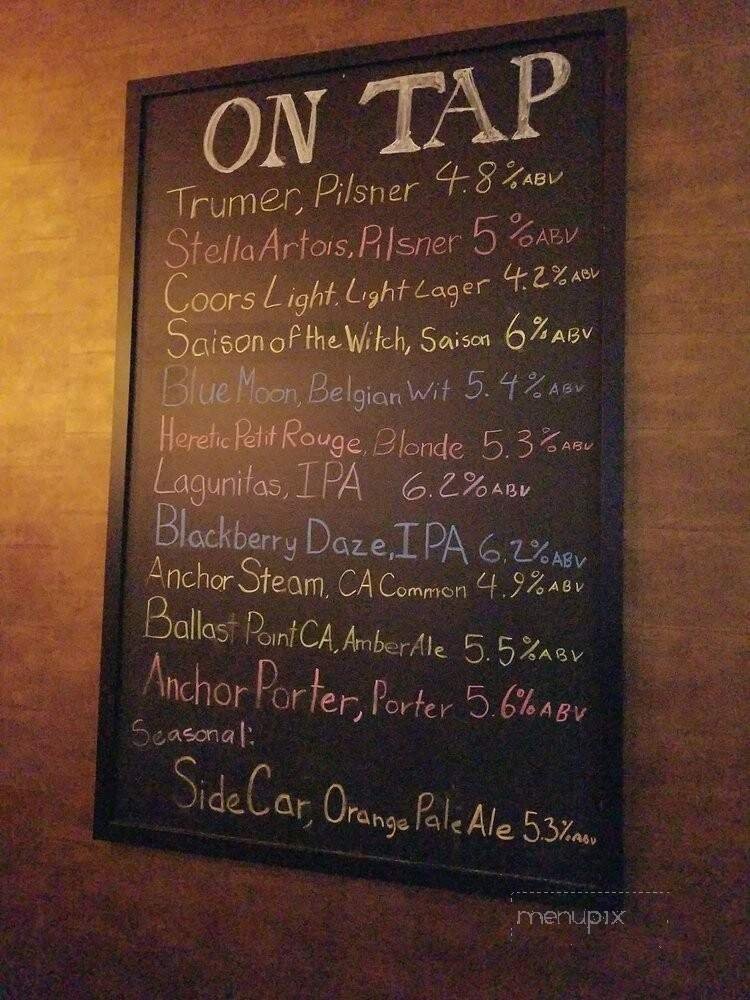 ON TAP
Trumer, Pilsner 4.8% ABV
Stella Artois, Pilsner 5% ABV
Coors Light, Light Lager 4.2% ABV
Saison of the Witch, Saison 6% ABV
Blue Moon, Belgian Wit 5.4% ABV
Heretic Petit Rouge, Blonde 5.3% ABV
Lagunitas, IPA 6.2% ABV
Blackberry Daze, IPA 6.2% ABV
Anchor Steam, CA Common 4.9% ABV
Ballast Point CA, Amber Ale 5.5% ABV
Anchor Porter, Porter 5.6% ABV
Seasonal:
Side Car, Orange Pale Ale 5.3% ABV
menupix